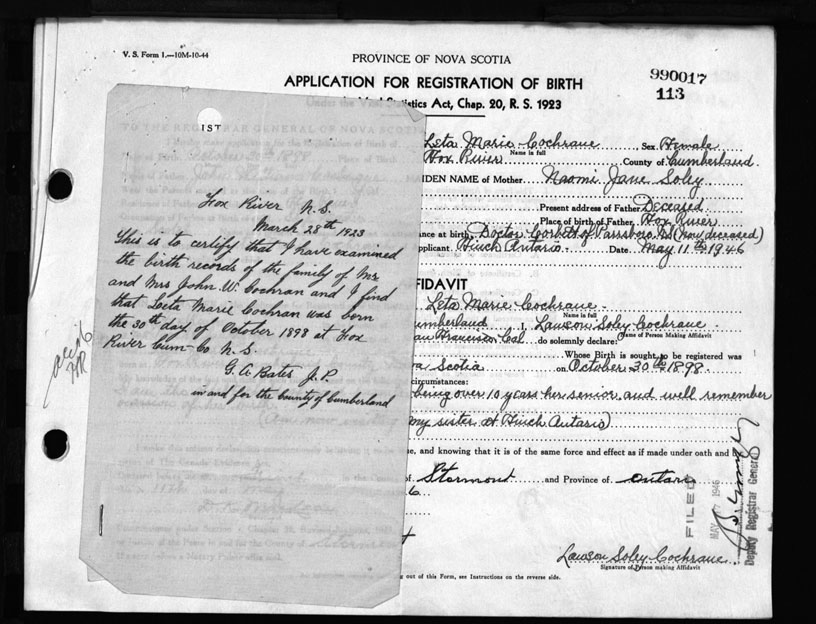 V. S. Form 1.—10M-10-44
PROVINCE OF NOVA SCOTIA
APPLICATION FOR REGISTRATION OF BIRTH
Statistics Act, Chap. 20, R. S. 1923
990017
113
IST
Fox River N.S.
March 28th 1923
This is to certify that I have examined
the birth records of the family of Mr
and Mrs John W. Cochran and I find
that Leta Marie Cochran was born
the 30th day of October 1898 at Fox
River Cum-Co N.S.
G. A. Bates J.P.
in and for the county of Cumberland
Leta Marie Cochrane Sex Female
Name in full
Fox River County of Cumberland
IDEN NAME of Mother Naomi Jane Soley
Present address of Father Deceased
Place of birth of Father Fox River
ance at birth Doctor Corbett of Parrsboro NS (now deceased)
pplicant Finch Ontario Date May 11th 1946
FIDAVIT
Leta Marie Cochrane
Name in full
umberland I, Lawson Soley Cochrane
Name of Person Making Affidavit
an Francisco Cal do solemnly declare:
Whose Birth is sought to be registered was
a Scotia on October 30th 1898.
ircumstances:
being over 10 years her senior and well remember
my sister at Finch Ontario)
ue, and knowing that it is of the same force and effect as if made under oath and b
of Stormont and Province of Ontario
6
FILED
MAY 17 1946
Deputy Registrar General
Lawson Soley Cochrane
Signature of Person making Affidavit
g out of this Form, see Instructions on the reverse side.